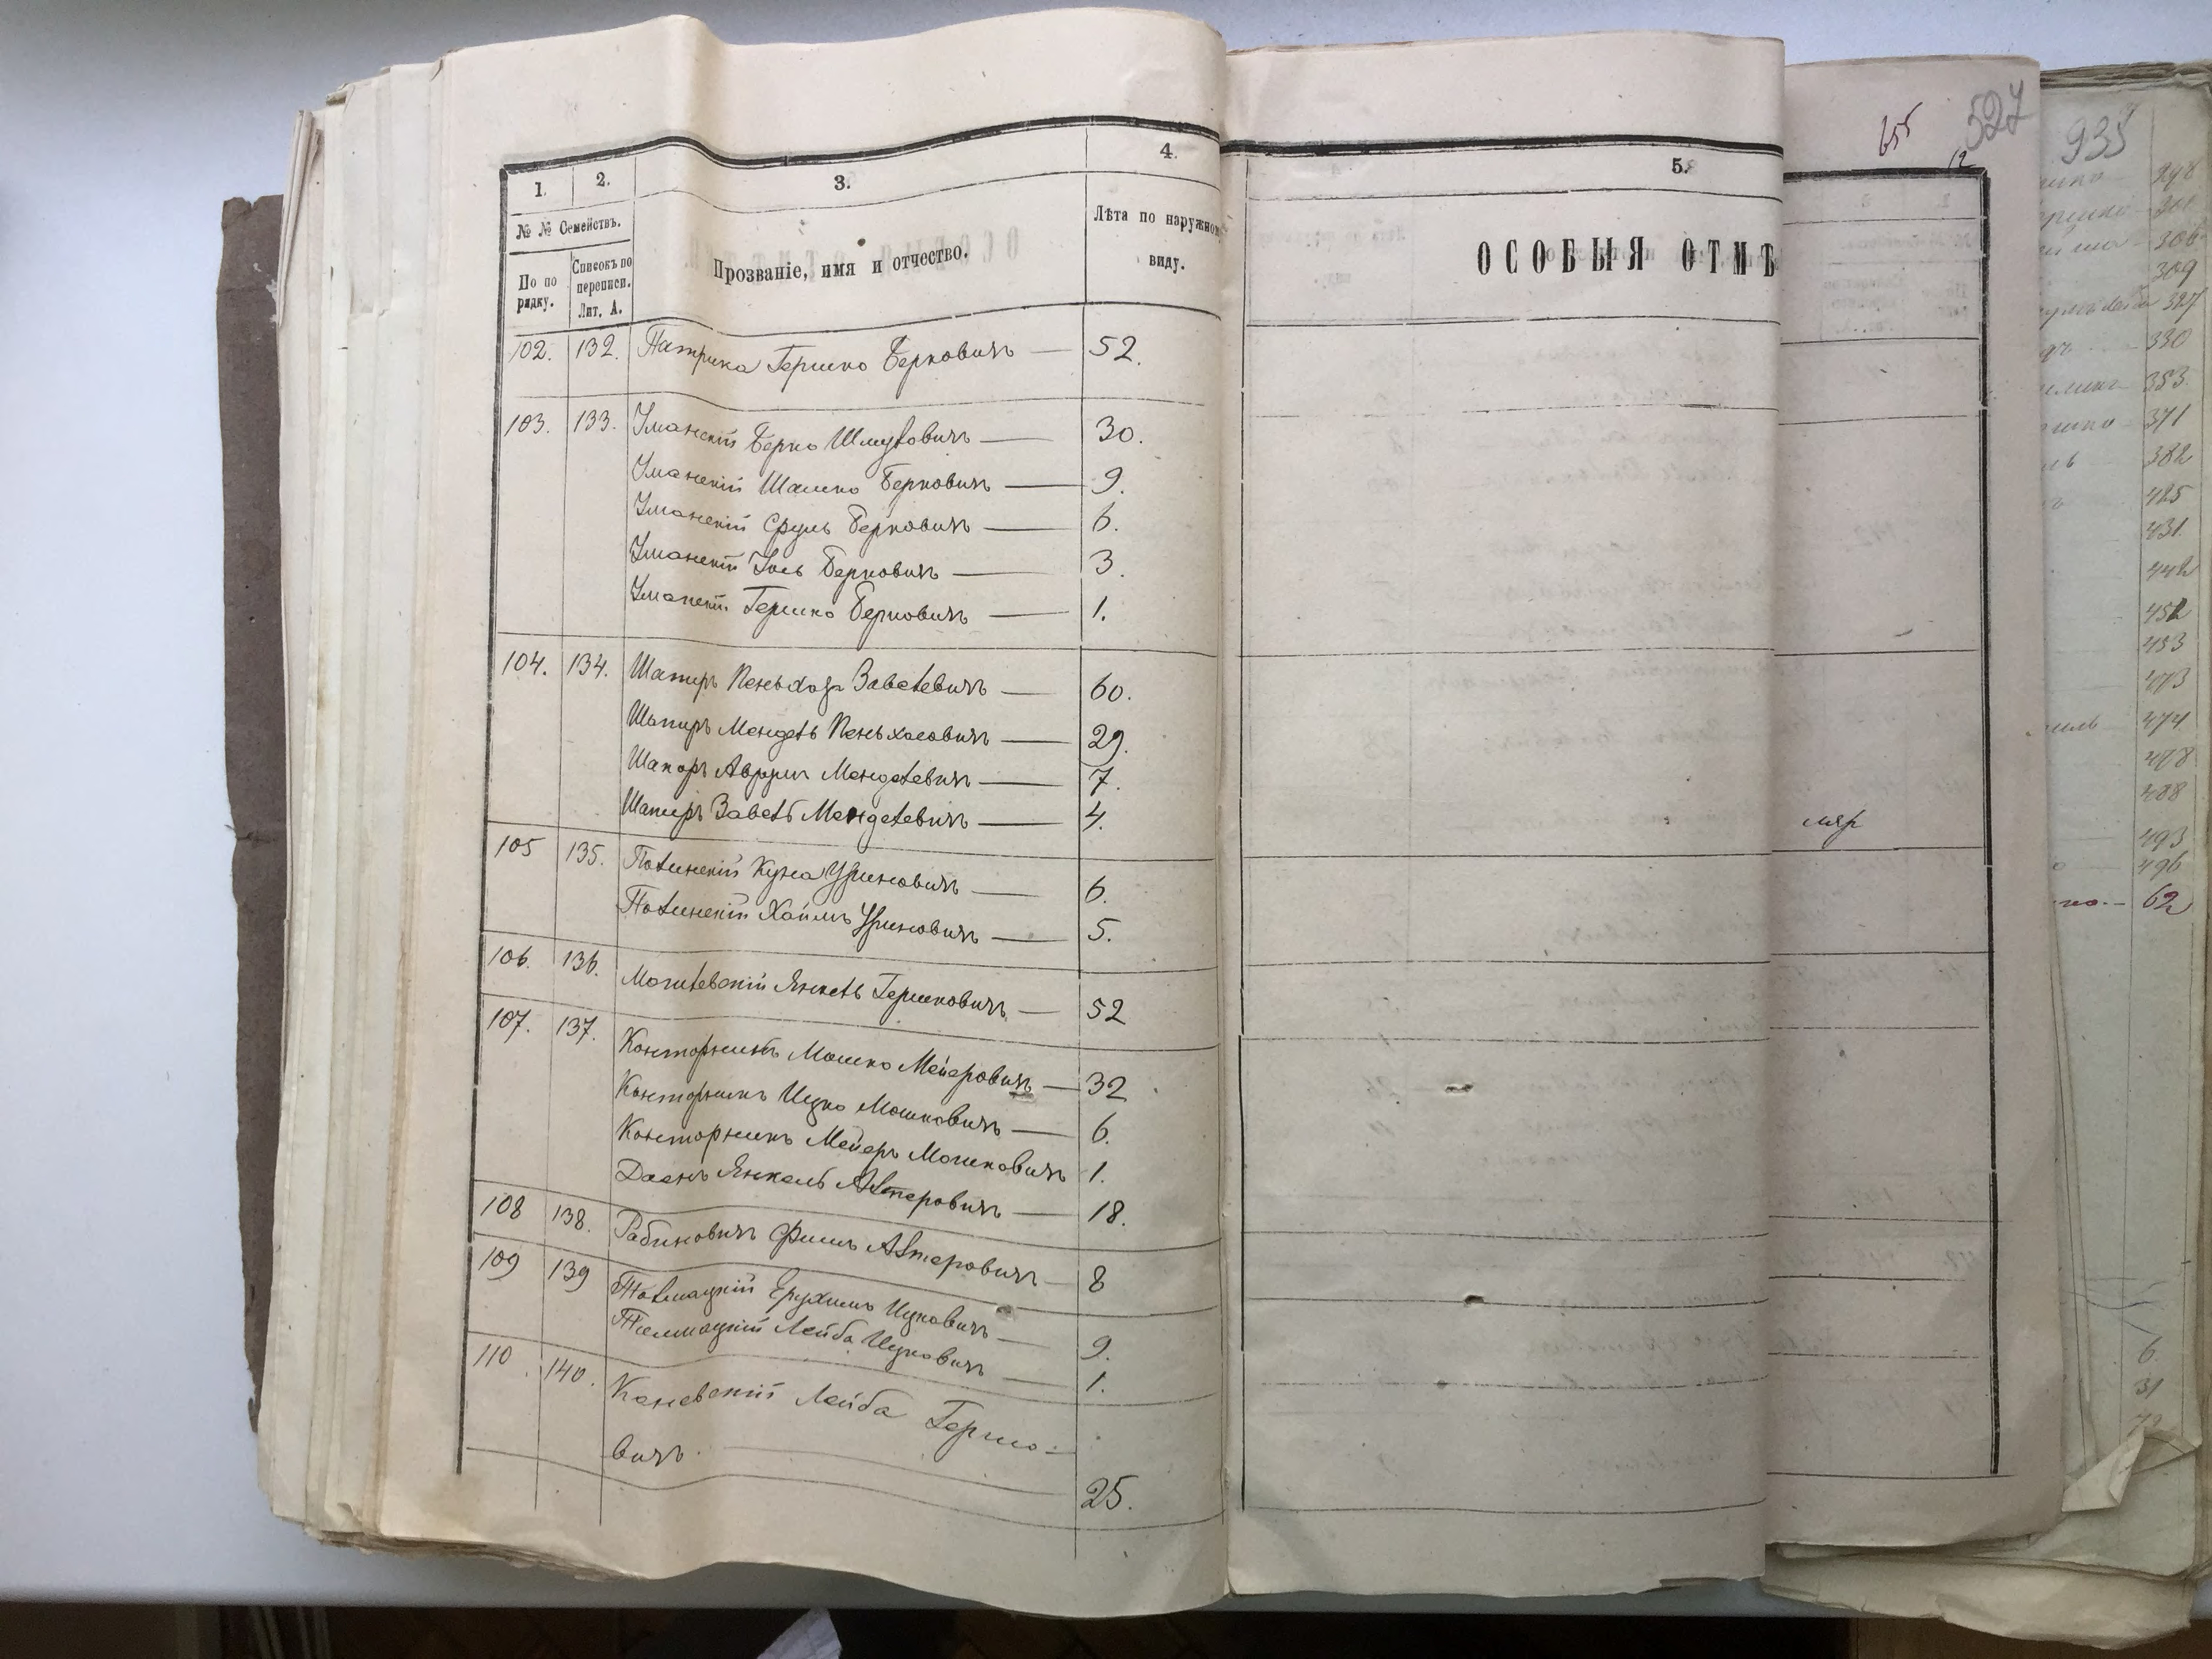 1. 2. 3. 4.
№ № Семействъ.
По по рядку.
Списокъ по переписи. Лит. А.
Прозваніе, имя и отчество.
Лѣта по наружному виду.
102. 132. Патрика Гершко Берковичъ — 52.
103. 133. Уманскій Берко Шмулёвичъ — 30.
Уманскій Шашко Берковичъ — 9.
Уманскій Сруль Берковичъ — 6.
Уманскій Іось Берковичъ — 3.
Уманскій Гершко Берковичъ — 1.
104. 134. Шапиръ Пеньхасъ Завелевичъ — 60.
Шапиръ Мендель Пеньхасовичъ — 29.
Шапиръ Аврумъ Менделевичъ — 7.
Шапиръ Завель Менделевичъ — 4.
105 135. Полинскій Куна Уриновичъ — 6.
Полинскій Хаимъ Уриновичъ — 5.
106. 136. Могилевскій Янкель Гершковичъ — 52
107. 137. Конторникъ Мошко Мейеровичъ — 32
Конторникъ Ицко Мошковичъ — 6.
Конторникъ Мейеръ Мошковичъ 1.
Даенъ Янкель Альтеровичъ — 18.
108 138. Рабиновичъ Фишъ Альтеровичъ — 8
109 139 Толмацкій Ерухимъ Ицковичъ — 9.
Толмацкій Лейба Ицковичъ — 1.
110. 140. Каневскій Лейба Гершо-
вичъ — 25.
5.
ОСОБЫЯ ОТМѢ
655
527
12
935
298
309
327
330
353
371
382
425
431
442
452
453
474
478
488
493
496
62
6
31